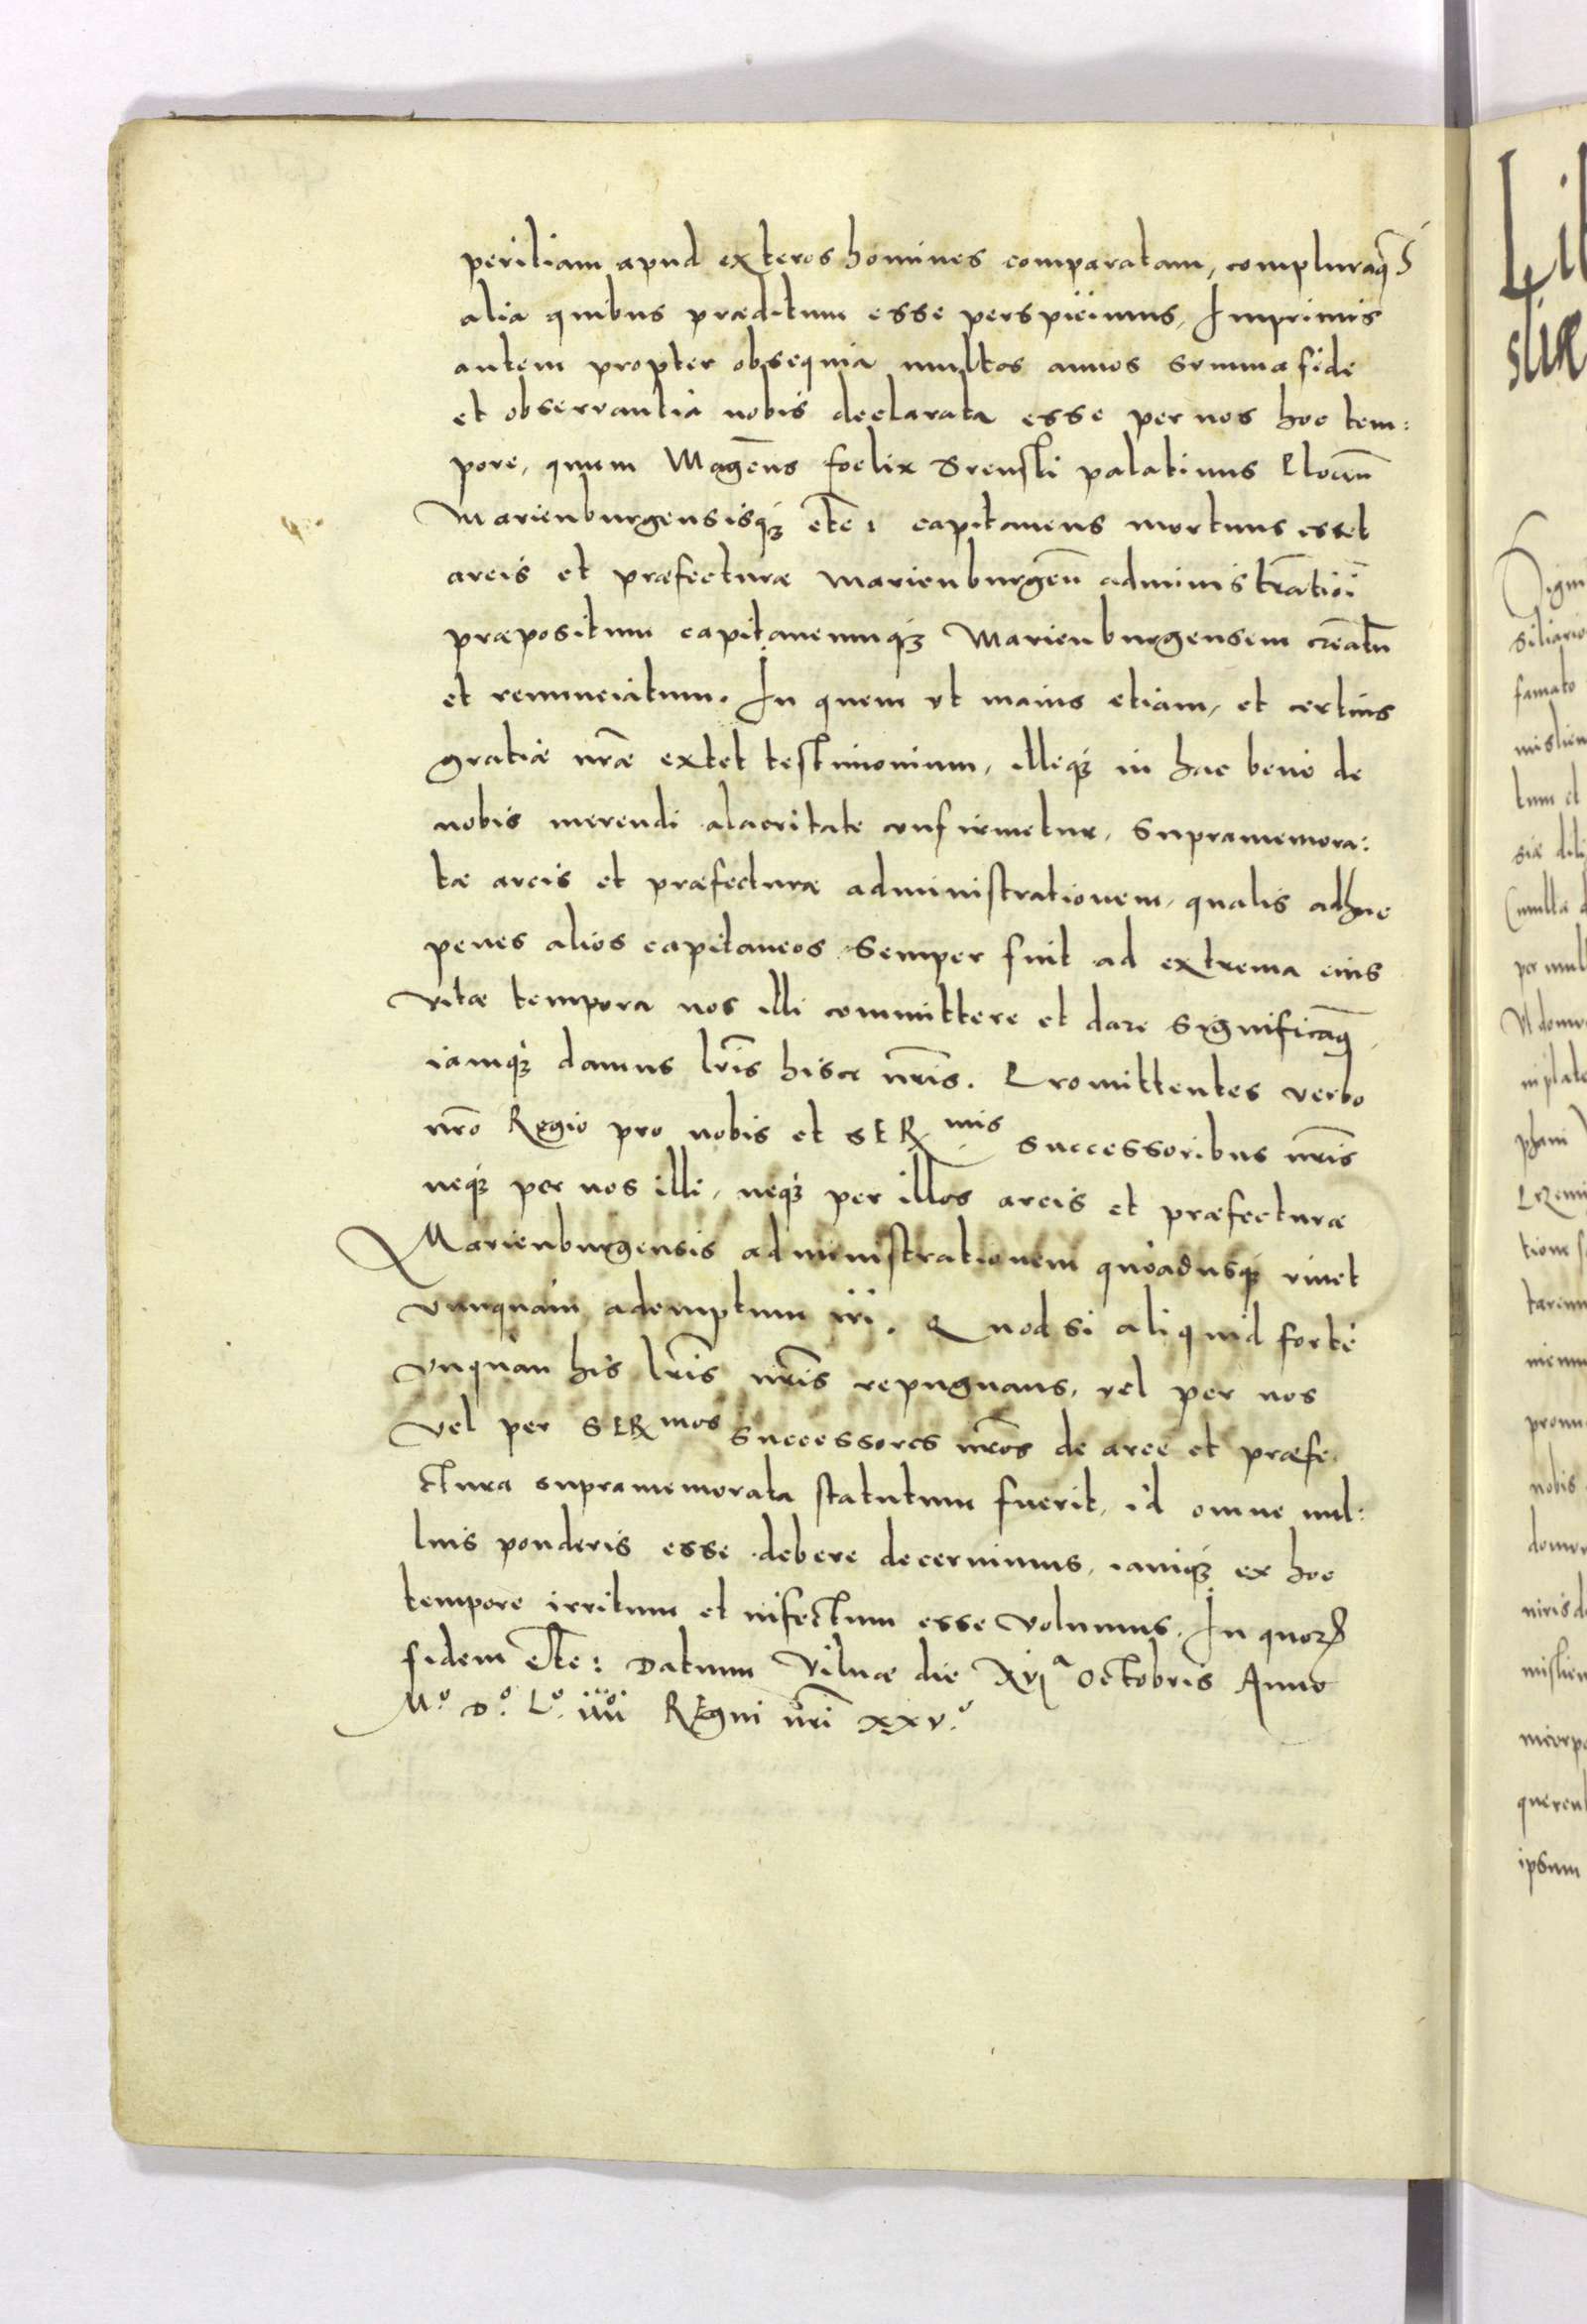 peritiam apud exteros homines comparatam, compluraq̃
alia quibus præditum esse perspicimus, Imprimis
autem propter obsequia multos annos summa fide
et observantia nobis declarata esse per nos hoc tem:
pore, quum Magcus foelix Srenski palatinus Plocen̄
Marienburgensisq; etc: capitaneus mortuus esset
arcis et præfecturæ Marienburgen̄ administratioi
præpositum capitaneumq; Marienburgensem creatū
et renunciatum. In quem ut maius etiam, et certius
gratiæ nr̄æ extet testimonium, illeq; in hac bene de
nobis merendi alacritate confirmetur, supramemora:
tæ arcis et præfecturæ administrationem, qualis adhuc
penes alios capitaneos semper fuit ad extrema eius
vitæ tempora nos illi committere et dare significam̄,
iamq; damus lr̄is hisce nr̄is. Promittentes verbo
nr̄o Regio pro nobis et SER mis successoribus nr̄is
neq; per nos illi, neq; per illos arcis et præfecturæ
Marienburgensis administrationem quoadusq; vivet
unquam ademptum iri. Quod si aliquid forte
unquam his lr̄is nr̄is repugnans, vel per nos
vel per SER mos successores nr̄os de arce et præfe
ctura supramemorata statutum fuerit, id omne nul:
lius ponderis esse debere decernimus, iamq; ex hoc
tempore irritum et infectum esse volumus. In quorꝫ
fidem etc: Datum Vilnæ die XVI a Octobris Anno
M.o D.o L.o iiii.o Regni nr̄i XXV.o